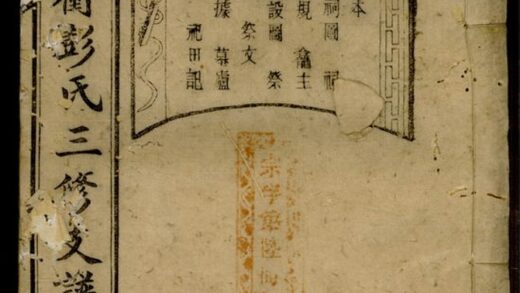 本
祠圖 祀
規 龕主
設圖 祭
祭文
據 墓廬
祀田記
宗字第陸
彭氏三修支譜